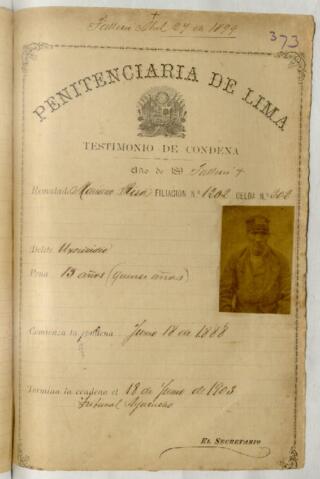 Falleció Abril 27 de 1899
373
PENITENCIARIA DE LIMA
TESTIMONIO DE CONDENA
Año de 18 Falleció
Rematado Mariano FILIACIÓN N.° 1202 CELDA N.° 202
Delito Uxoricidio
Pena 15 años (quince años)
Comienza la condena Junio 18 de 1888
Termina la condena el 18 de Junio de 1903
Tribunal Ayacucho
EL SECRETARIO